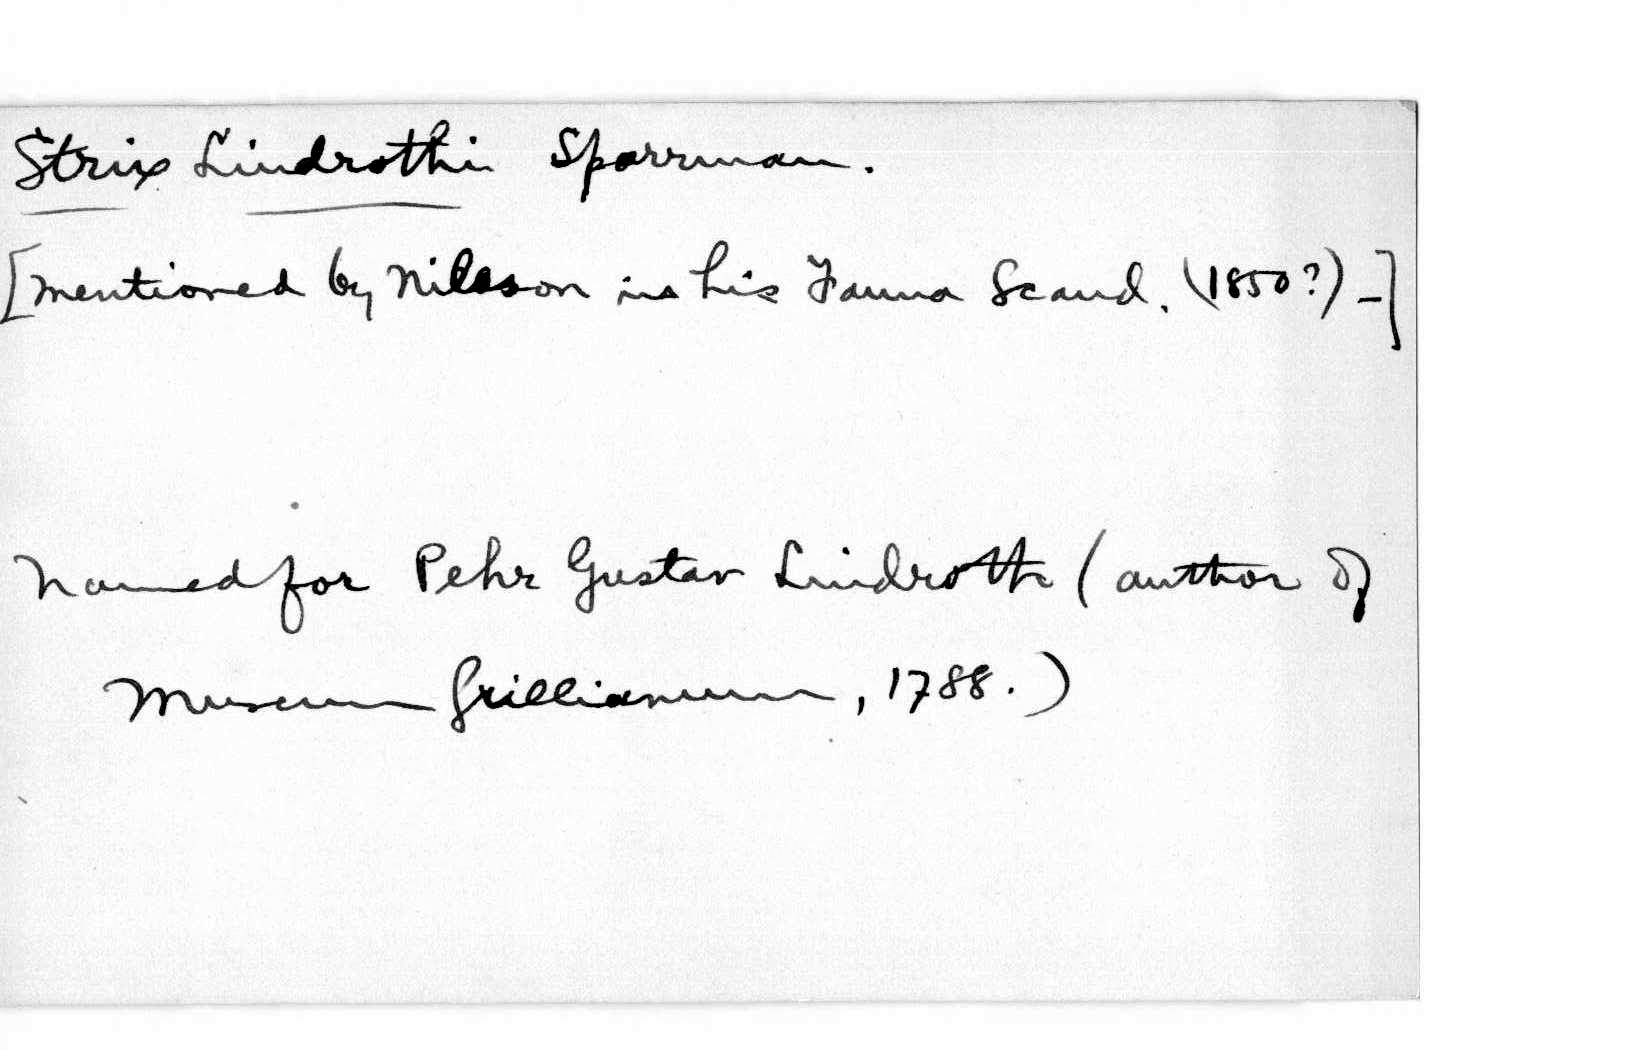 Strix Lindrothii Sparrman.
[mentioned by Nilsson in his Fauna Scand. (1850?) -]
Named for Pehr Gustav Lindroth (author of
Museum Grillianum, 1788.)